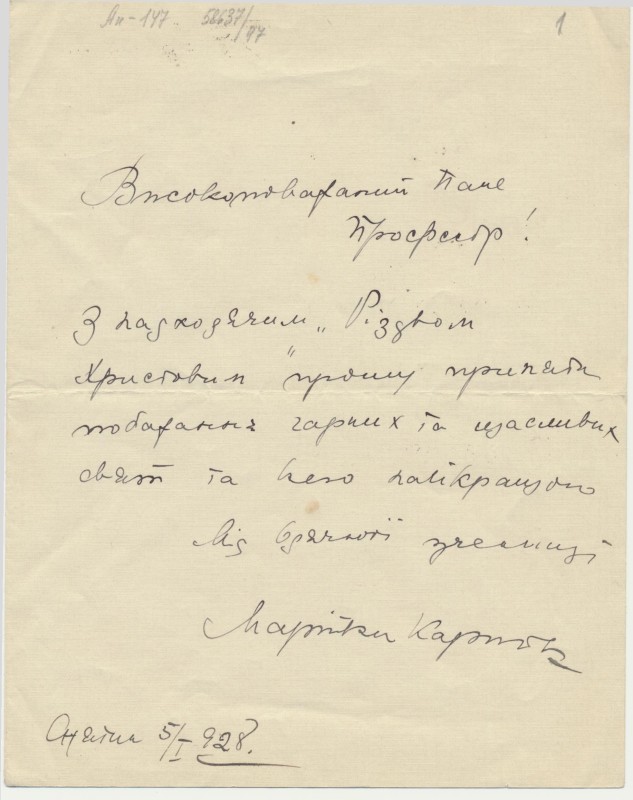 Ап-147 58637/I
97
1
Високоповажаний Пане
Професор!
З надходячим „Різдвом
Христовим" прошу приняти
побажання гарних та щасливих
свят та всего найкращого
Від вдячної учениці
Марійки
Снятин 5/I 928.